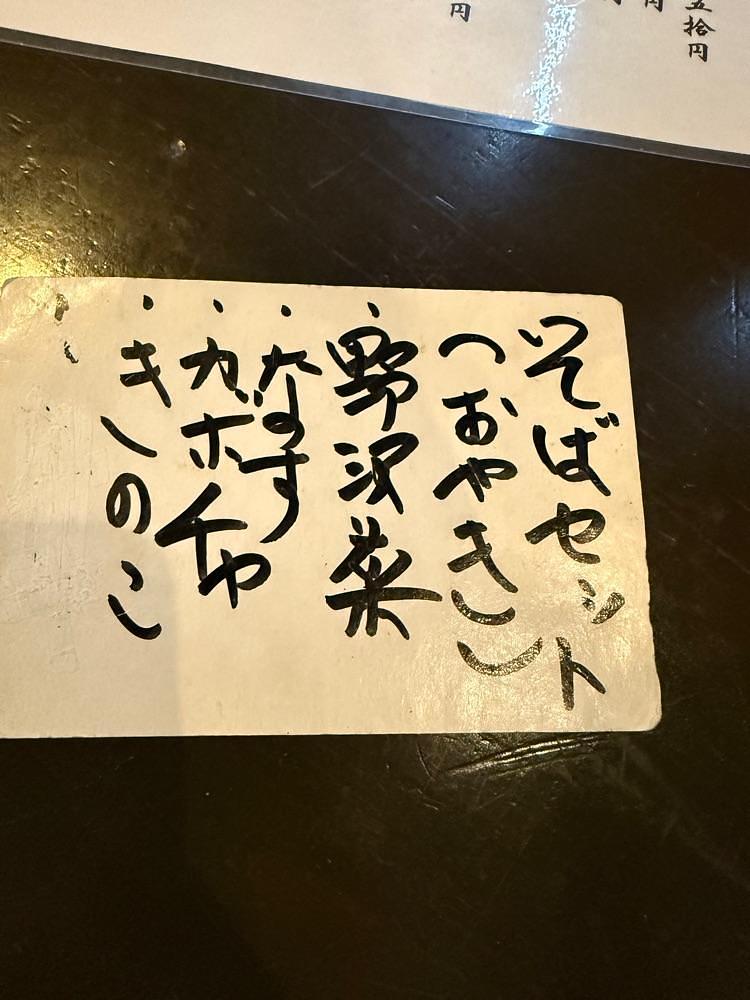 五拾円
円
円
そばセット
(おやき)
・野沢菜
・なす
・カボチャ
・きのこ